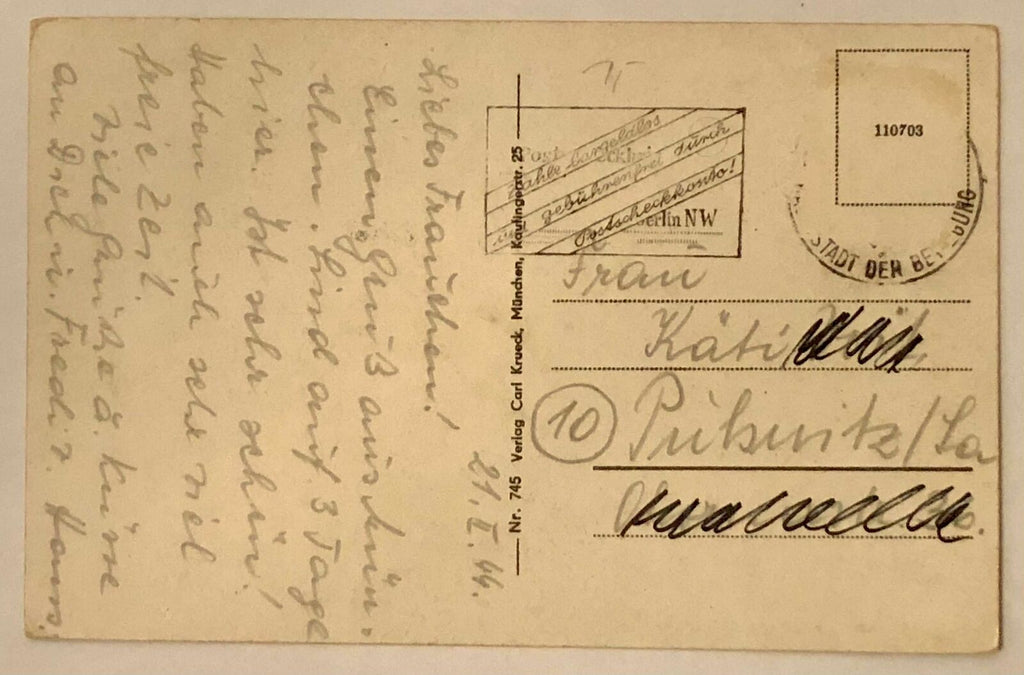 21. II. 44.
Liebes Frauchen!
Einen Gruß aus Mün-
chen. Sind auf 3 Tage
hier. Ist sehr schön!
Haben auch sehr viel
freie Zeit.
Viele Grüße u. Küsse
an Dich u. Fredi v. Hans.
Nr. 745 Verlag Carl Krueck, München, Kaufingerstr. 25
Zahle bargeldlos
gebührenfrei durch
Postscheckkonto!
Berlin NW
110703
STADT DER BEWEGUNG
Frau
Käti
10 Pulsnitz/Sa